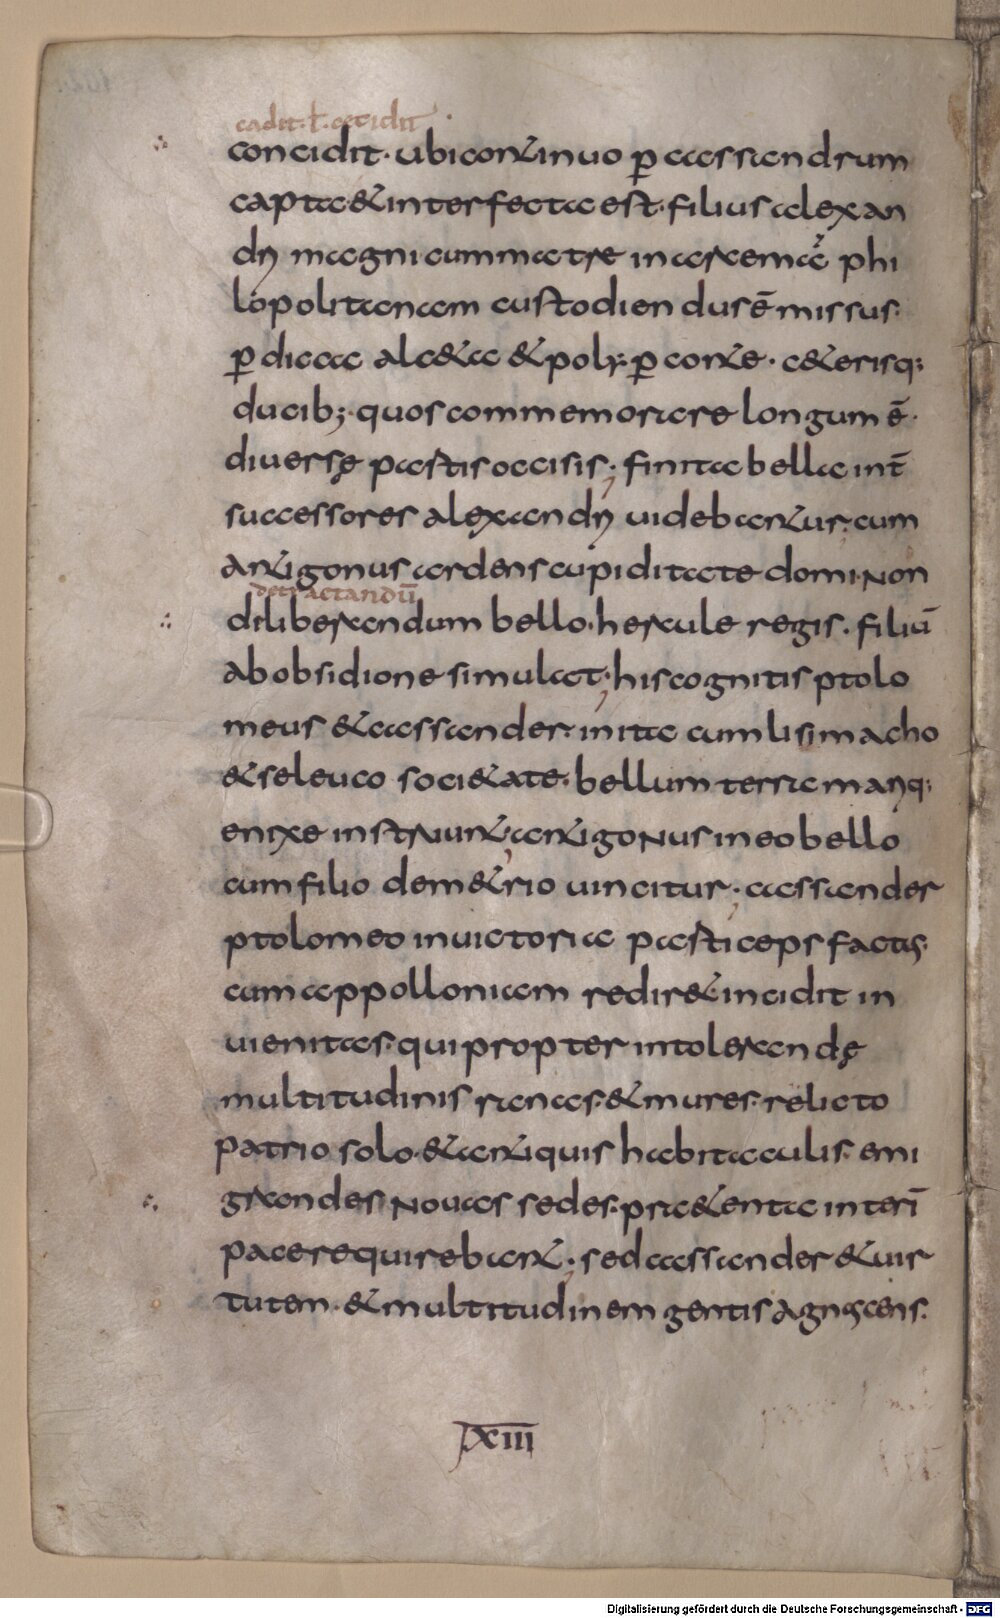 cadit · ł · cecidit ·
concidit · ubi continuo p̲ cassandrum
capta & interfecta est · filius alexan
dri magni cum matre in arcem ac̓ phi
lopolitanam custodiendus ē missus ·
p̲dicca alc&a & poly; p̲conte · c&erisq;
ducib; quos commemorare longum ē ·
diversę partis occisis; finita bella int̄
successores alexandri uidebantur · cum
antigonus ardens cupiditate domi non
detractandū
diliberandum bello · hercule regis · filiū
ab obsidione simulat; his cognitis ptolo
meus & cassander · inita cum lisimacho
& seleuco soci&ate · bellum terra mariq;
enixe instruunt; antigonus in eo bello
cum filio dem&rio uincitur; cassander
ptolomeo in uictoria particeps factus ·
cum appolloniam redir& · incidit in
uienitas · qui propter intolerandę
multitudinis ranas · & mures · relicto
patrio solo · & antiquis habitaculis · emi
grandes novas sedes · pr&enta interī
pace requirebant; sed cassander & uir
tutem · & multitudinem gentis agnoscens ·
XIII
Digitalisierung gefördert durch die Deutsche Forschungsgemeinschaft - DFG